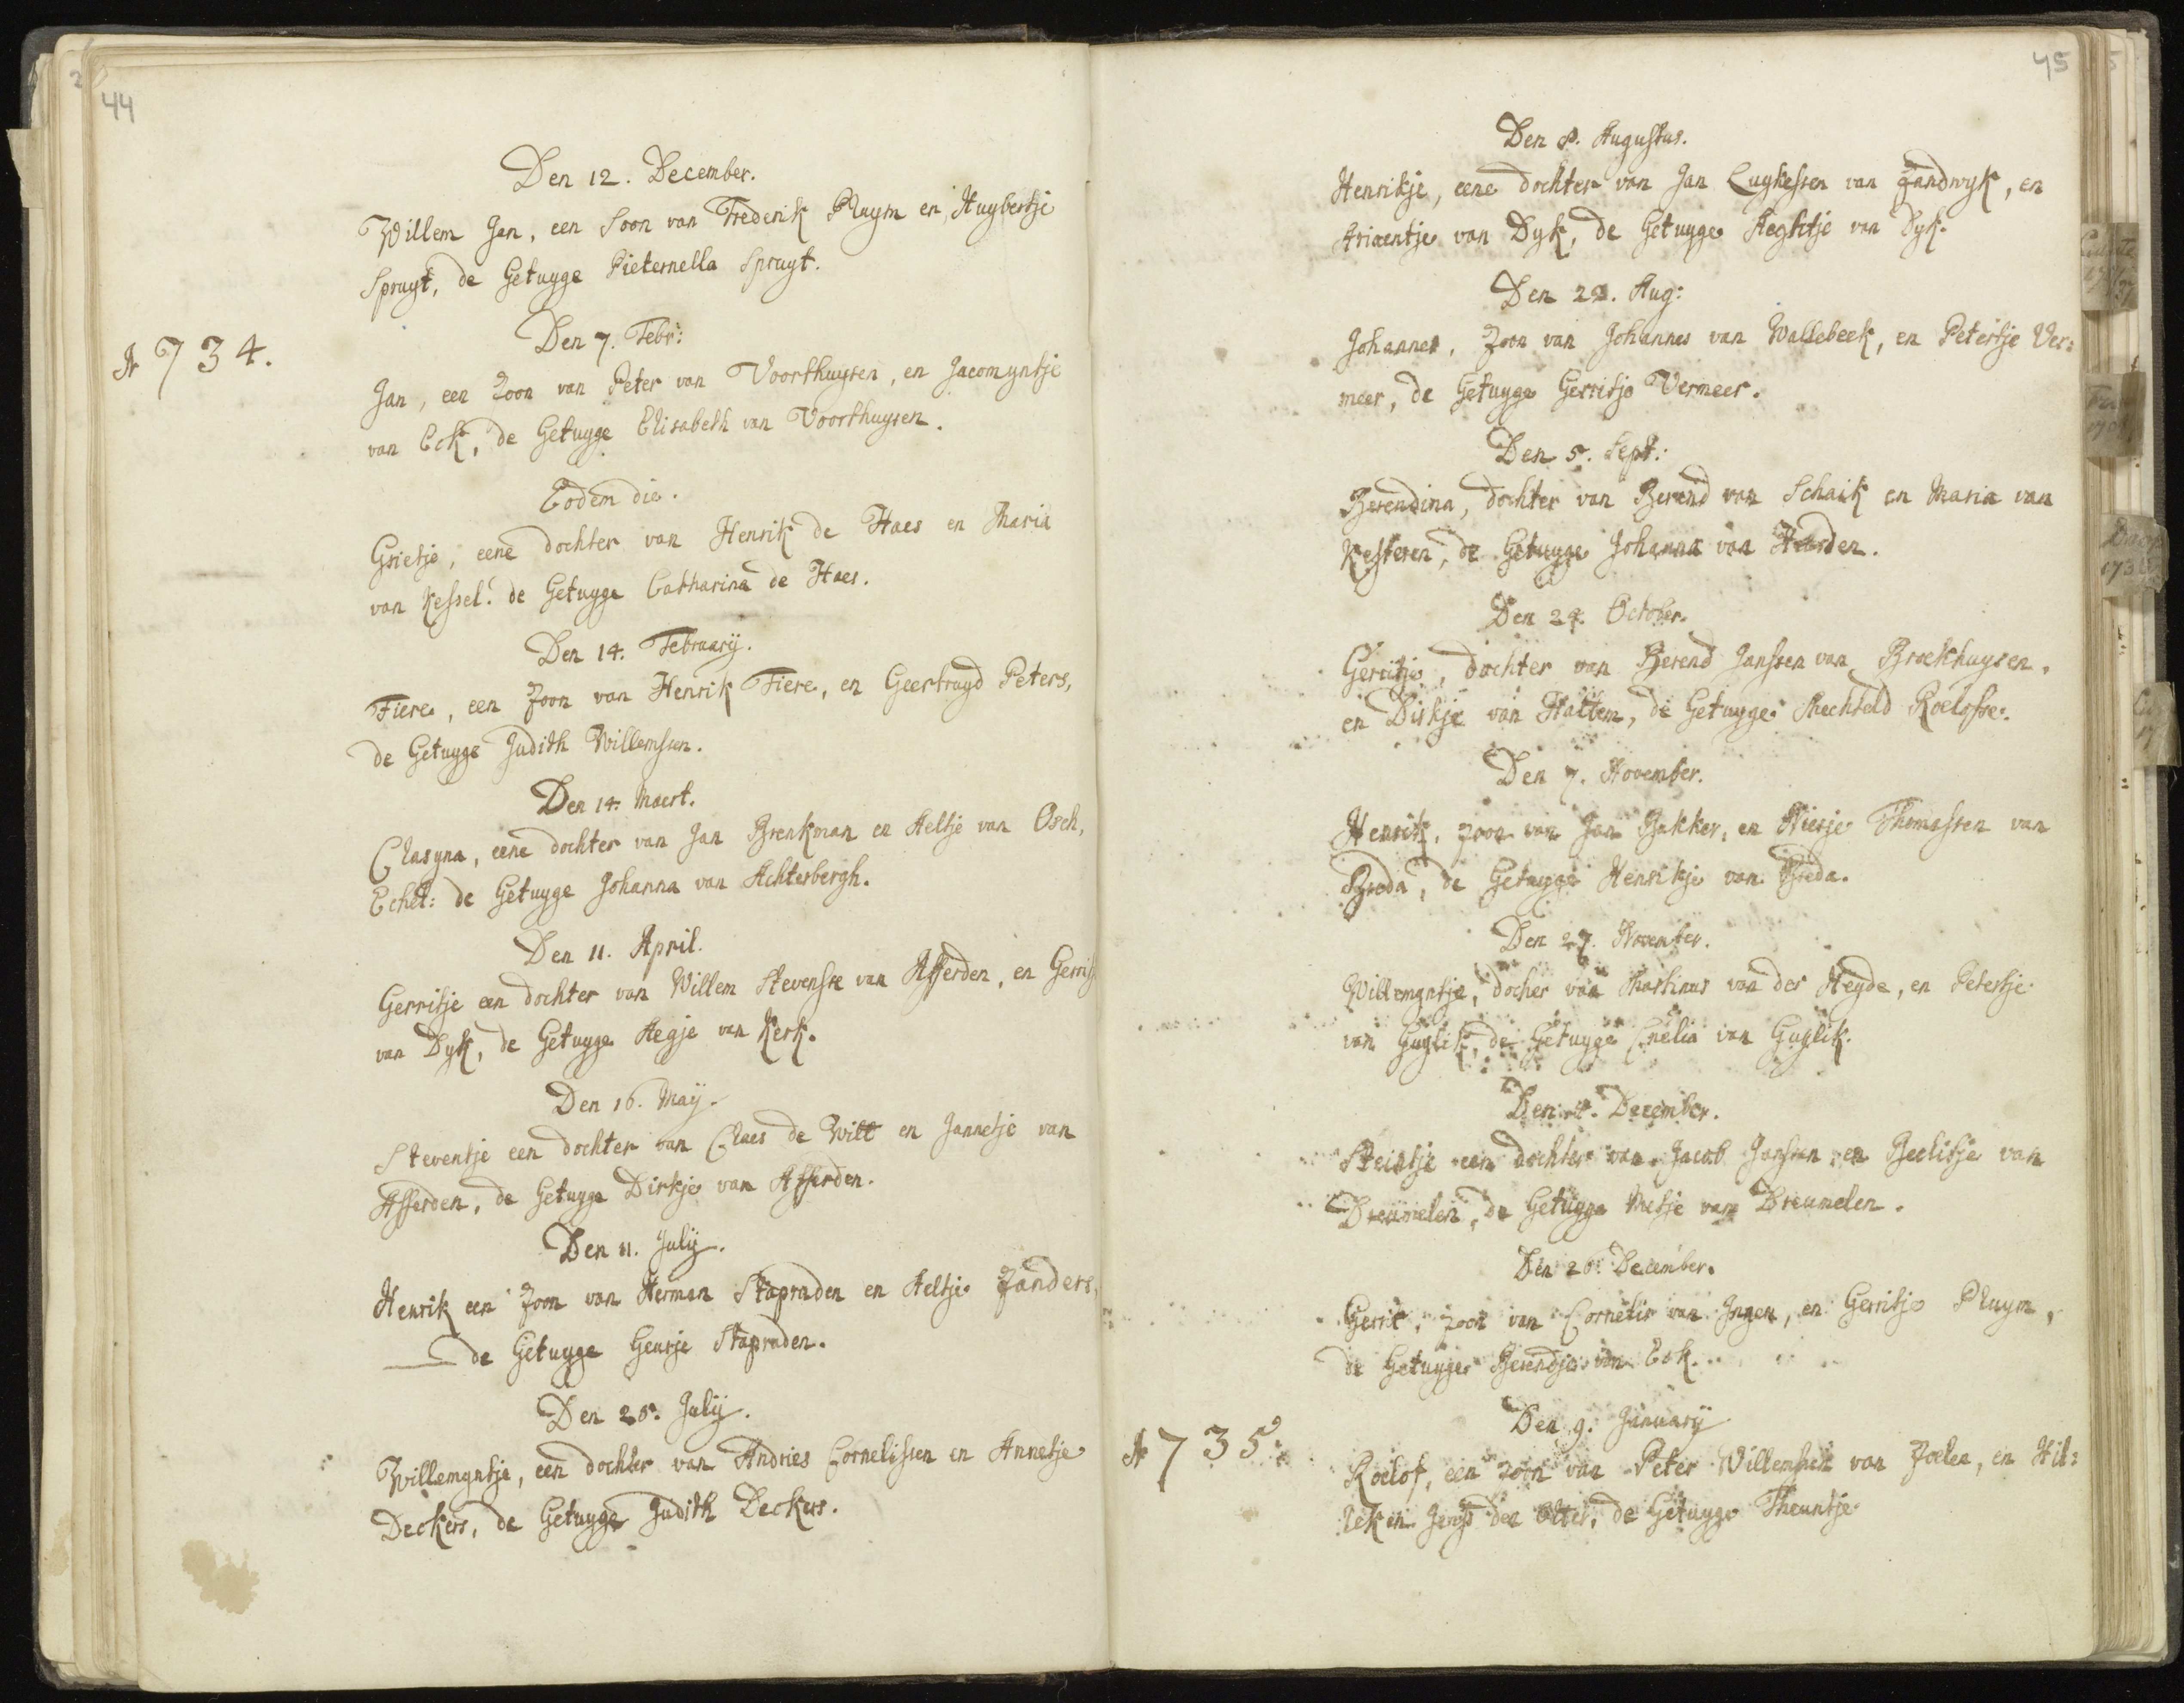 44
Den 12. December.
Willem Jan, een Soon van Frederik Pluym en Huybertje
Spruyt, de Getuyge Pieternella Spruyt.
A 1734.
Den 7. Febr:
Jan, een Zoon van Peter van Voorthuysen, en Jacomyntje
van Eck, de Getuyge Elisabeth van Voorthuysen.
Eodem die.
Grietje, eene dochter van Henrik de Haes en Maria
van Kessel. de Getuyge Catharina de Haes.
Den 14. February.
Fiere, een Zoon van Henrik Fiere, en Geertruyd Peters,
de Getuyge Judith Willemssen.
Den 14. Maert.
Clasyna, eene dochter van Jan Brenkman en Aeltje van Osch,
Echt: de Getuyge Johanna van Achterbergh.
Den 11. April.
Gerritje een dochter van Willem Stevense van Afferden, en
van Dyk, de Getuyge Aegje van Kerk.
Den 16. May.
Steventje een dochter van Claes de Witt en Jannetje van
Afferden, de Getuyge Dirkje van Afferden.
Den 11. July.
Henrik een Zoon van Herman Stapraden en Aeltje Zanders,
de Getuyge Geurje Stapraden.
Den 25. July.
Willemyntje, een dochter van Andries Cornelissen en Annetje
Deckers, de Getuyge Judith Deckers.
45
Den 8. Augustus.
Henrikje, eene dochter van Jan Luykessen van Zandwyk, en
Ariaentje van Dyk, de Getuyge Aeghtje van Dyk.
Den 22. Aug:
Johannes, Zoon van Johannes van Wallebeek, en Petertje Ver:
meer, de Getuyge Gerritje Vermeer.
Den 5. Sept:
Berendina, dochter van Berend van Schaik en Maria van
Kesteren, de Getuyge Johanna van
Den 24. October.
Gerritje, dochter van Berend Janssen van Broekhuysen,
en Dirkje van Hattem, de Getuyge Mechteld Roelofse.
Den 7. November.
Henrik, zoon van Jan Bakker, en Niesje Thomassen van
Breda, de Getuyge Henrikje van Breda.
Den 27. November.
Willemyntje, docher van Martinus van der Heyde, en Petertje
van Guylik, de Getuyge Cnelia van Guylik.
Den 4. December.
Steintje een dochter van Jacob Janssen en Beelitje van
Dreumelen, de Getuyge Metje van Dreumelen.
Den 26. December.
Gerrit, zoon van Cornelis van Ingen, en Gerritje Pluym,
de Getuyge Berendje van Eck.
A 1735.
Den 9. January
Roelof, een zoon van Peter Willemsen van Zoelen, en Hil:
leken den Otter, de Getuyge Theuntje